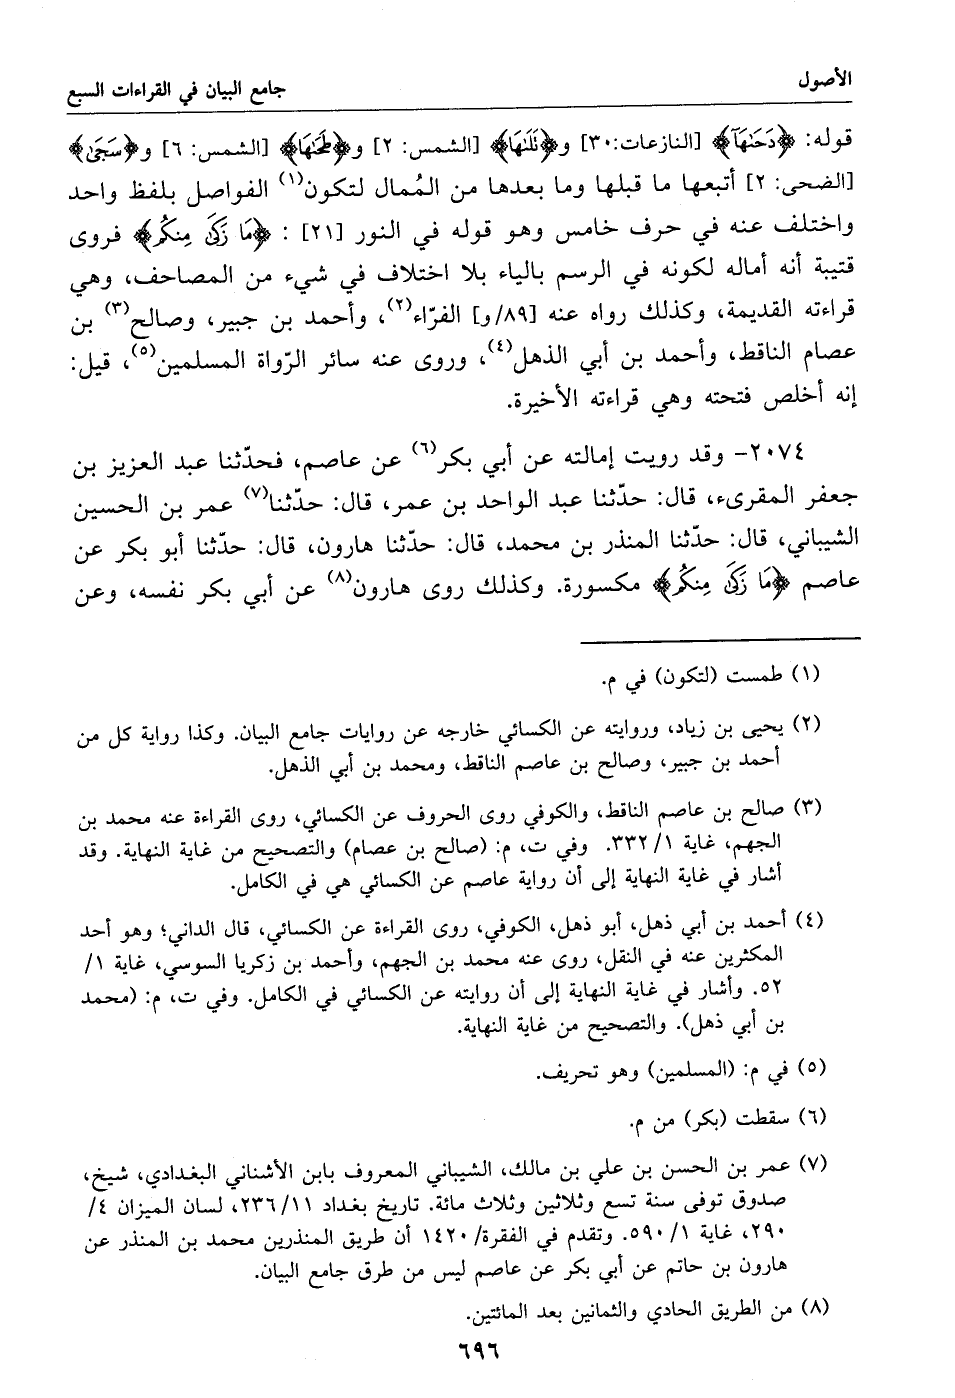 الأصول
جامع البيان في القراءات السبع
قوله: ﴿دَحَىٰهَآ﴾ [النازعات: ٣٠] و﴿تَلَىٰهَا﴾ [الشمس: ٢] و﴿طَحَىٰهَا﴾ [الشمس: ٦] و﴿سَجَىٰ﴾
[الضحى: ٢] أتبعها ما قبلها وما بعدها من المُمال لتكون(١) الفواصل بلفظ واحد
واختلف عنه في حرف خامس وهو قوله في النور [٢١] : ﴿مَا زَكَىٰ مِنكُم﴾ فروى
قتيبة أنه أماله لكونه في الرسم بالياء بلا اختلاف في شيء من المصاحف، وهي
قراءته القديمة، وكذلك رواه عنه [٨٩/و] الفرّاء(٢)، وأحمد بن جبير، وصالح(٣) بن
عصام الناقط، وأحمد بن أبي الذهل(٤)، وروى عنه سائر الرّواة المسلمين(٥)، قيل:
إنه أخلص فتحته وهي قراءته الأخيرة.
٢٠٧٤- وقد رويت إمالته عن أبي بكر(٦) عن عاصم، فحدّثنا عبد العزيز بن
جعفر المقرىء، قال: حدّثنا عبد الواحد بن عمر، قال: حدّثنا(٧) عمر بن الحسين
الشيباني، قال: حدّثنا المنذر بن محمد، قال: حدّثنا هارون، قال: حدّثنا أبو بكر عن
عاصم ﴿مَا زَكَىٰ مِنكُم﴾ مكسورة. وكذلك روى هارون(٨) عن أبي بكر نفسه، وعن
(١) طمست (لتكون) في م.
(٢) يحيى بن زياد، وروايته عن الكسائي خارجه عن روايات جامع البيان. وكذا رواية كل من
أحمد بن جبير، وصالح بن عاصم الناقط، ومحمد بن أبي الذهل.
(٣) صالح بن عاصم الناقط، والكوفي روى الحروف عن الكسائي، روى القراءة عنه محمد بن
الجهم، غاية ١/ ٣٣٢. وفي ت، م: (صالح بن عصام) والتصحيح من غاية النهاية. وقد
أشار في غاية النهاية إلى أن رواية عاصم عن الكسائي هي في الكامل.
(٤) أحمد بن أبي ذهل، أبو ذهل، الكوفي، روى القراءة عن الكسائي، قال الداني؛ وهو أحد
المكثرين عنه في النقل، روى عنه محمد بن الجهم، وأحمد بن زكريا السوسي، غاية ١/
٥٢. وأشار في غاية النهاية إلى أن روايته عن الكسائي في الكامل. وفي ت، م: (محمد
بن أبي ذهل). والتصحيح من غاية النهاية.
(٥) في م: (المسلمين) وهو تحريف.
(٦) سقطت (بكر) من م.
(٧) عمر بن الحسن بن علي بن مالك، الشيباني المعروف بابن الأشناني البغدادي، شيخ،
صدوق توفى سنة تسع وثلاثين وثلاث مائة. تاريخ بغداد ١١/ ٢٣٦، لسان الميزان ٤/
٢٩٠، غاية ١/ ٥٩٠. وتقدم في الفقرة/ ١٤٢٠ أن طريق المنذرين محمد بن المنذر عن
هارون بن حاتم عن أبي بكر عن عاصم ليس من طرق جامع البيان.
(٨) من الطريق الحادي والثمانين بعد المائتين.
٦٩٦